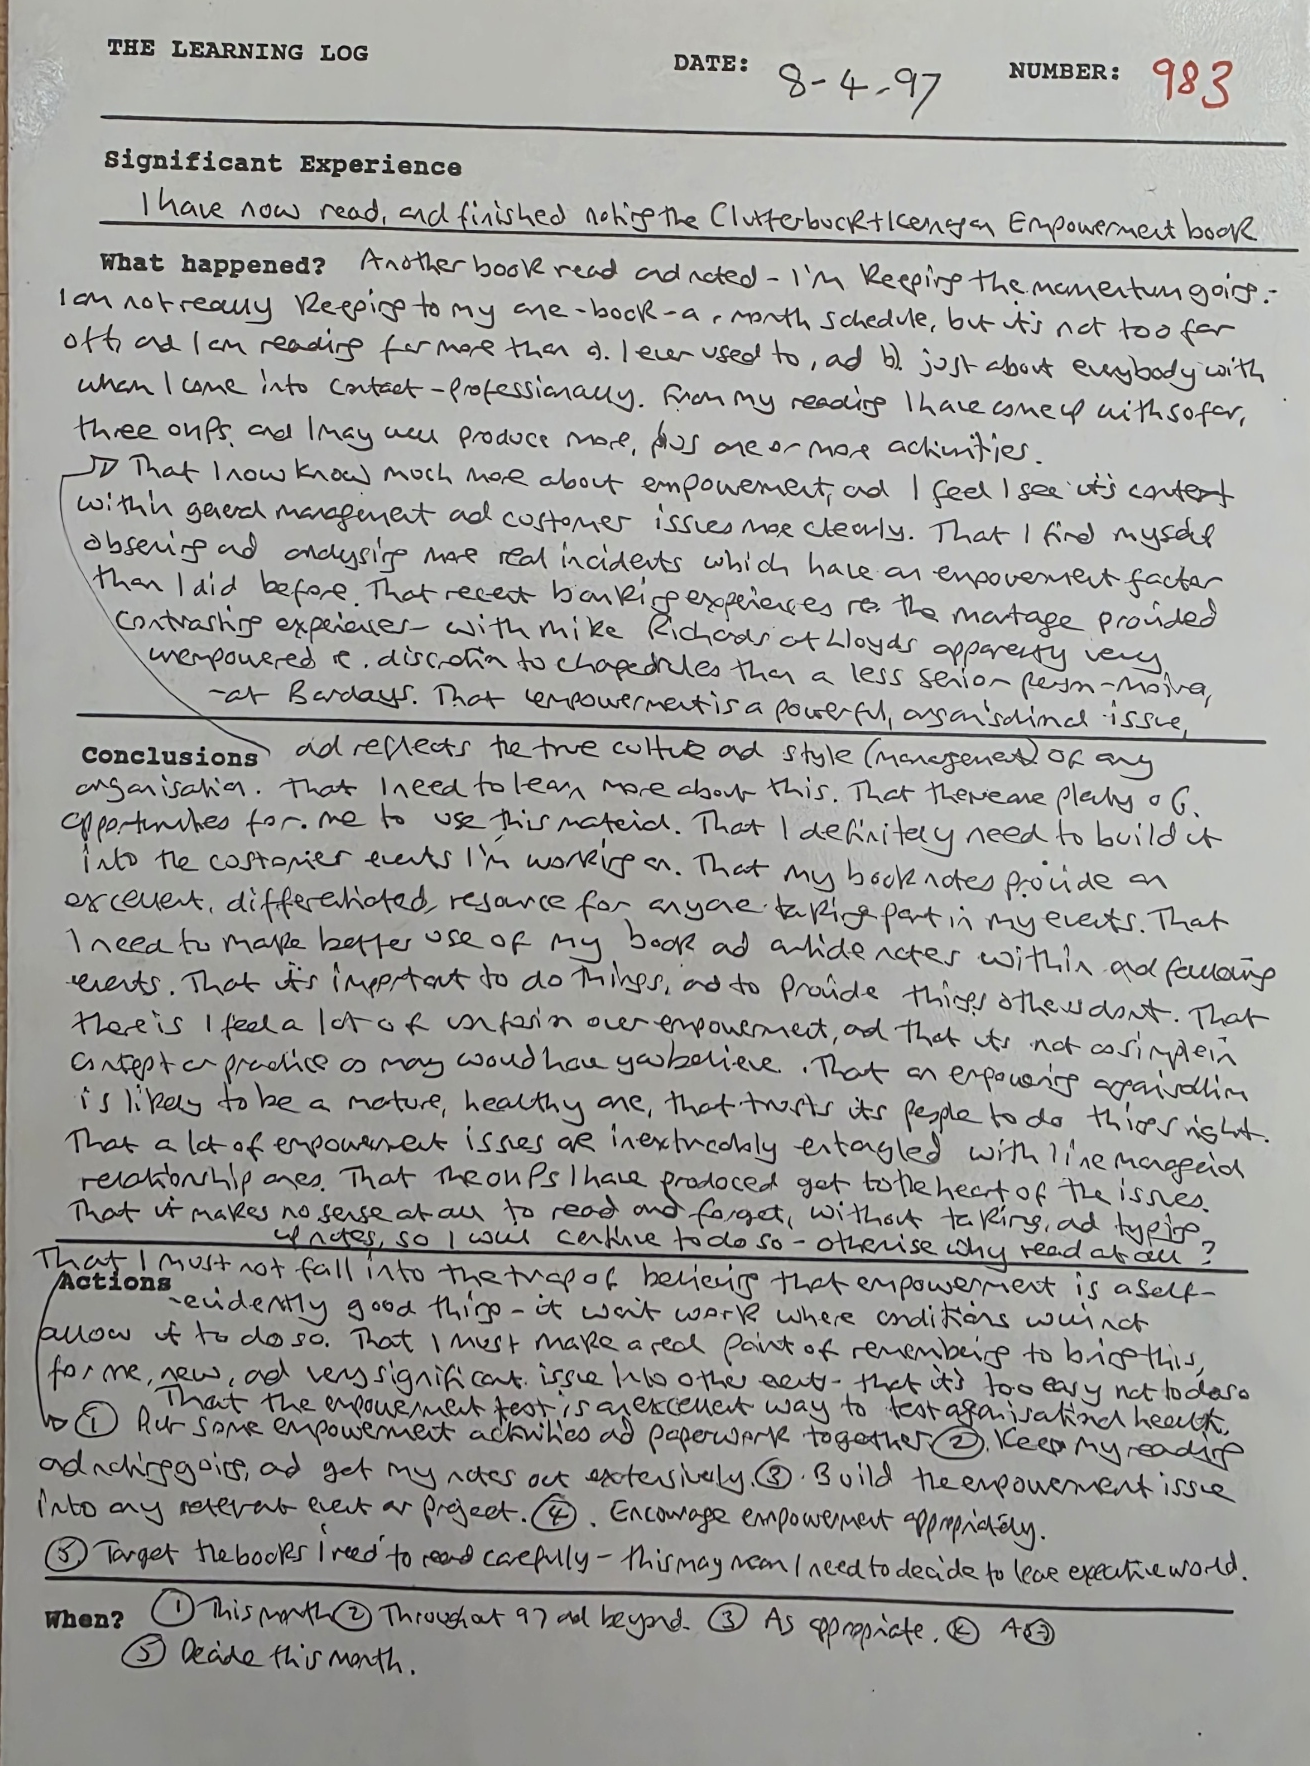 THE LEARNING LOG DATE: 8-4-97 NUMBER: 983
Significant Experience
I have now read, and finished noting the Clutterbuck + Kernagan Empowerment book
What happened? Another book read and noted - I'm keeping the momentum going.-
I am not really keeping to my one-book-a-month schedule, but it's not too far
off, and I am reading far more than a). I ever used to, ad b). just about everybody with
whom I come into contact - professionally. From my reading I have come up with so far,
three OHPs, and I may well produce more, plus one or more activities.
That I now know much more about empowerment, ad I feel I see it's context
within general management ad customer issues more clearly. That I find myself
observing ad analysing more real incidents which have an empowerment factor
than I did before. That recent banking experiences re the mortage provided
contrasting experiences - with Mike Richards at Lloyds apparently very
unempowered re. discretion to change rules than a less senior person - Moira,
- at Barclays. That empowerment is a powerful, organisational issue,
Conclusions ad reflects the true culture ad style (management) of any
organisation. That I need to learn more about this. That there are plenty of
opportunities for me to use this material. That I definitely need to build it
into the customer events I'm working on. That my book notes provide an
excellent, differentiated, resource for anyone taking part in my events. That
I need to make better use of my book ad article notes within and following
events. That it's important to do things, ad to provide things others dont. That
there is I feel a lot of confusion over empowerment, ad that its not as simple in
concept or practice as many would have you believe. That an empowering organisation
is likely to be a mature, healthy one, that trusts its people to do things right.
That a lot of empowerment issues are inextricably entangled with line managerial
relationship ones. That the OHPs I have produced get to the heart of the issues.
That it makes no sense at all to read and forget, without taking, ad typing
up notes, so I will continue to do so - otherwise why read at all?
That I must not fall into the trap of believing that empowerment is a self-
Actions -evidently good thing - it won't work where conditions will not
allow it to do so. That I must make a real point of remembering to bring this,
for me, new, ad very significant issue into other events - that it's too easy not to do so
That the empowerment test is an excellent way to test organisational health.
① Put some empowerment activities ad paperwork together ②. Keep my reading
ad noting going, ad get my notes out extensively. ③. Build the empowerment issue
into any relevant event or project. ④. Encourage empowerment appropriately.
⑤ Target the books I need to read carefully - this may mean I need to decide to leave executive world.
When? ① This month ② Throughout 97 ad beyond. ③ As appropriate. ④ As ③
⑤ Decide this month.